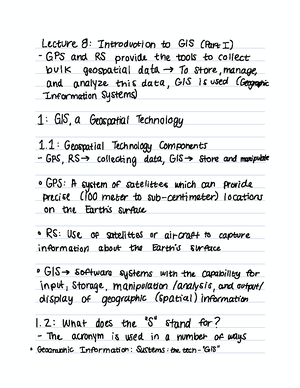 Lecture 8: Introduction to GIS (Part I)
- GPS and RS provide the tools to collect
bulk geospatial data → To store, manage,
and analyze this data, GIS is used (Geographic
Information Systems)
1: GIS, a Geospatial Technology
1.1: Geospatial Technology Components
- GPS, RS → collecting data, GIS → store and manipulate
• GPS: A system of satellites which can provide
precise (100 meter to sub-centimeter) locations
on the Earth's surface
• RS: Use of satellites or aircraft to capture
information about the Earth's surface
• GIS → Software systems with the capability for
input, storage, manipulation/analysis, and output/
display of geographic (spatial) information
1.2: What does the "S" stand for?
- The acronym is used in a number of ways
• Geographic Information Systems: the tech - "GIS"